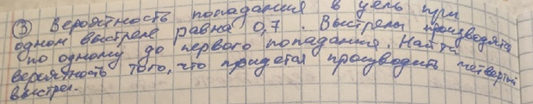 ③ Вероятность попадания в цель при
одном выстреле равна 0,7. Выстрелы производятся
по одному до первого попадания. Найти
вероятность того, что придется производить четвертый
выстрел.